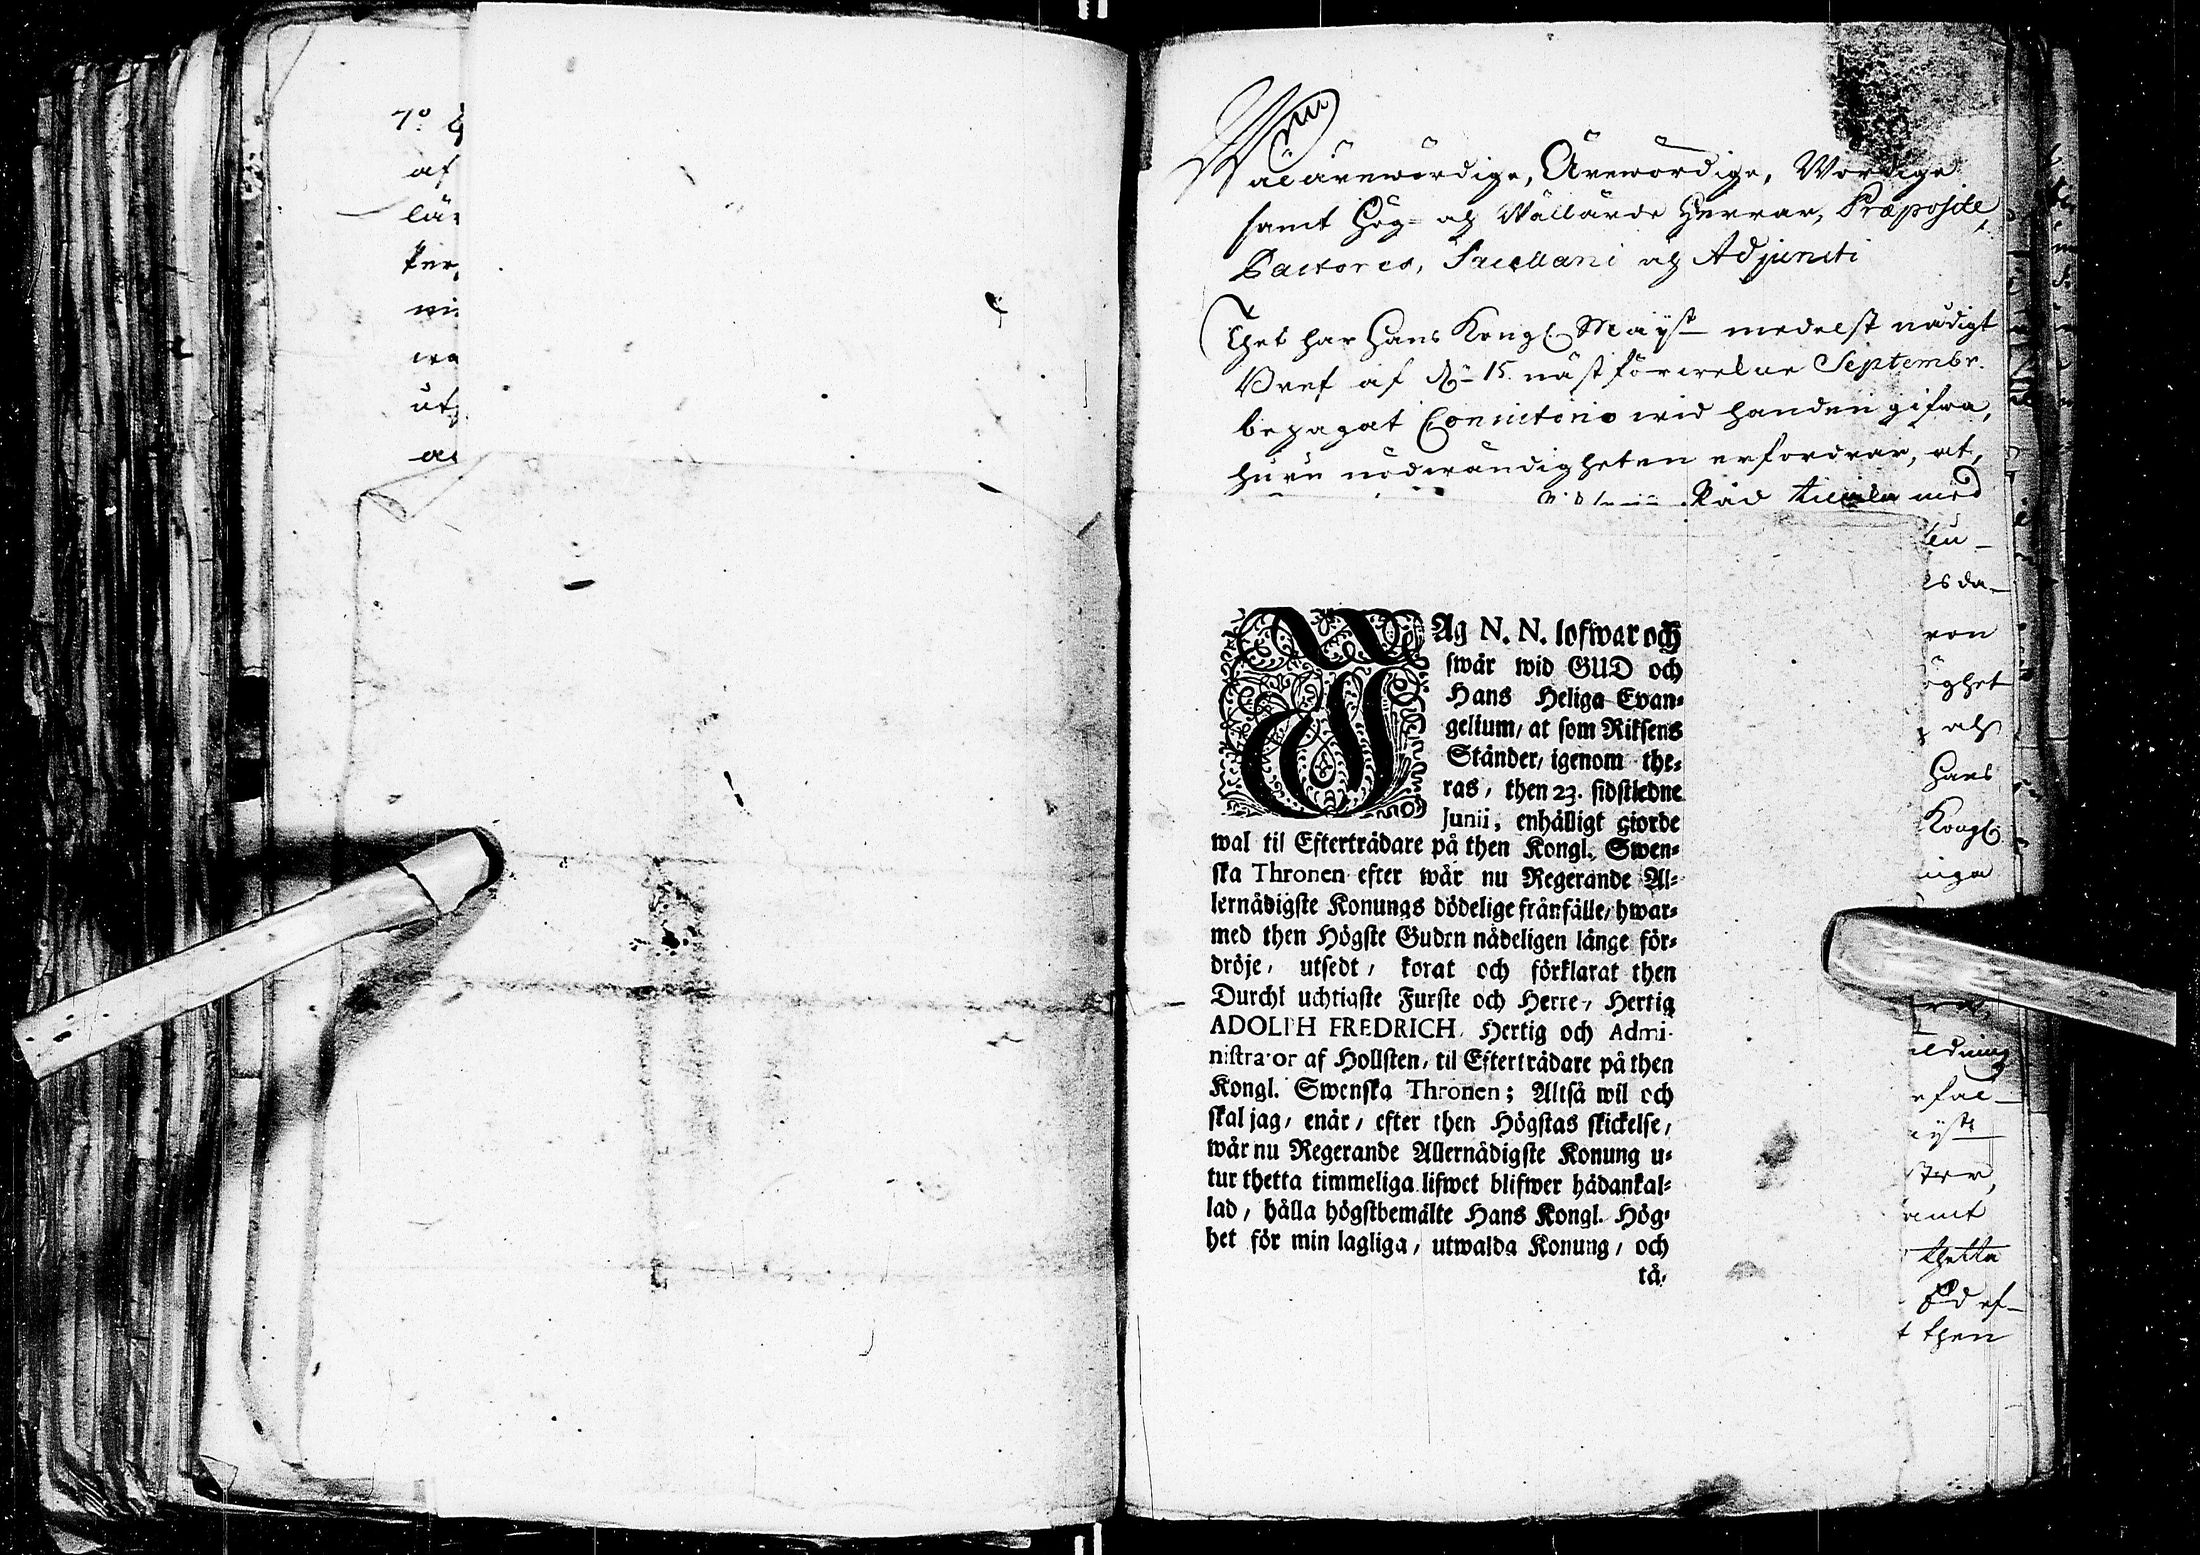 7:o
af
utaf
Wälärewördige, Ärewördige, Wördige
samt Hög- och Wällärde Herrar, Præpositi,
Pastores, Sacellani och Adjuncti
Thet har Hans Kongl. Maij:st medelst nådigt
Bref af d. 15. nästförwekne Septembr.
behagat Consistorio wid handen gifwa,
huru nödwändigheten erfordrar, at,
Råd med
JAg N. N. lofwar och
swär wid GUD och
Hans Heliga Evan-
gelium/ at som Riksens
Ständer/ igenom the-
ras/ then 23. sidstledne
Junii, enhälligt giorde
wal til Efterträdare på then Kongl. Swen-
ska Thronen efter wår nu Regerande Al-
lernådigste Konungs dödelige frånfälle/ hwar-
med then Högste Guden nådeligen länge för-
dröje/ utsedt/ korat och förklarat then
Durchl uchtigste Furste och Herre/ Hertig
ADOLPH FREDRICH, Hertig och Admi-
nistrator af Hollsten/ til Efterträdare på then
Kongl. Swenska Thronen; Altså wil och
skal jag/ enär/ efter then Högstas skickelse/
wår nu Regerande Allernådigste Konung u-
tur thetta timmeliga lifwet blifwer hådankal-
lad/ hålla högstbemälte Hans Kongl. Hög-
het för min lagliga/ utwalda Konung/ och
tå-
esda-
ron
öghet
och
Hans
Kongl.
niga
eldning
efal-
aij:ts
amt
thetta
Ed ef-
t then